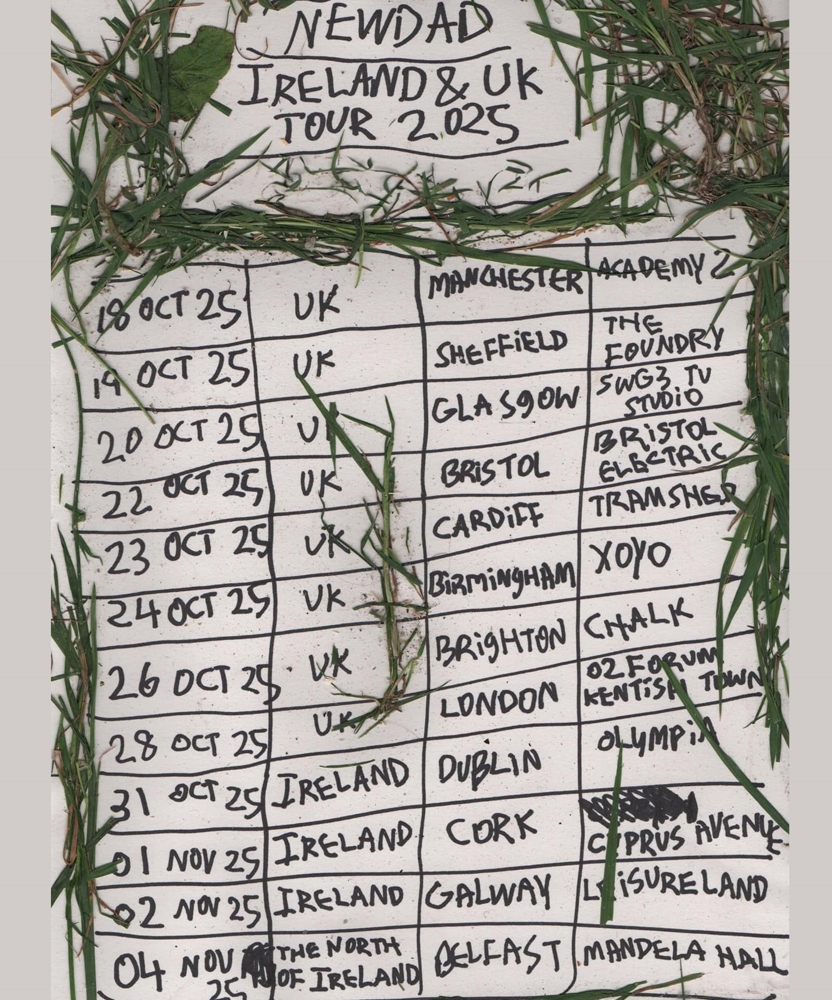 NEWDAD
IRELAND & UK
TOUR 2025
18 OCT 25 UK MANCHESTER ACADEMY 2
19 OCT 25 UK SHEFFIELD THE FOUNDRY
20 OCT 25 UK GLASGOW SWG3 TV STUDIO
22 OCT 25 UK BRISTOL BRISTOL ELECTRIC
23 OCT 25 UK CARDIFF TRAMSHED
24 OCT 25 UK BIRMINGHAM XOYO
26 OCT 25 UK BRIGHTON CHALK
28 OCT 25 UK LONDON O2 FORUM KENTISH TOWN
31 OCT 25 IRELAND DUBLIN OLYMPIA
01 NOV 25 IRELAND CORK CYPRUS AVENUE
02 NOV 25 IRELAND GALWAY LEISURELAND
04 NOV 25 THE NORTH OF IRELAND BELFAST MANDELA HALL